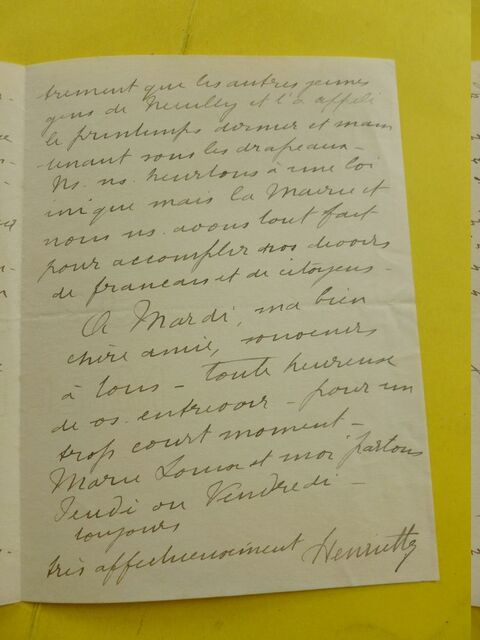 trement que les autres jeunes
gens de Neuilly et l'a appelé
le printemps dernier et main
tenant sous les drapeaux -
Ns. ns. heurtons à une loi
inique mais la Mairie et
nous ns. avons tout fait
pour accomplir nos devoirs
de français et de citoyens -
A Mardi, ma bien
chère amie, souvenirs
à tous - toute heureuse
de vs. entrevoir - pour un
trop court moment -
Marie Louise et moi partons
Jeudi ou Vendredi -
toujours
très affectueusement Henriette